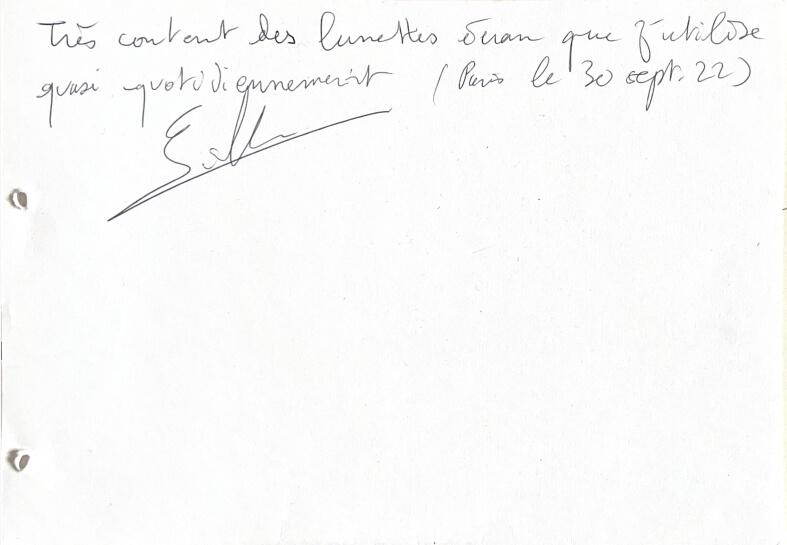 Très content des lunettes écran que j'utilise
quasi quotidiennement (Paris le 30 sept. 22)